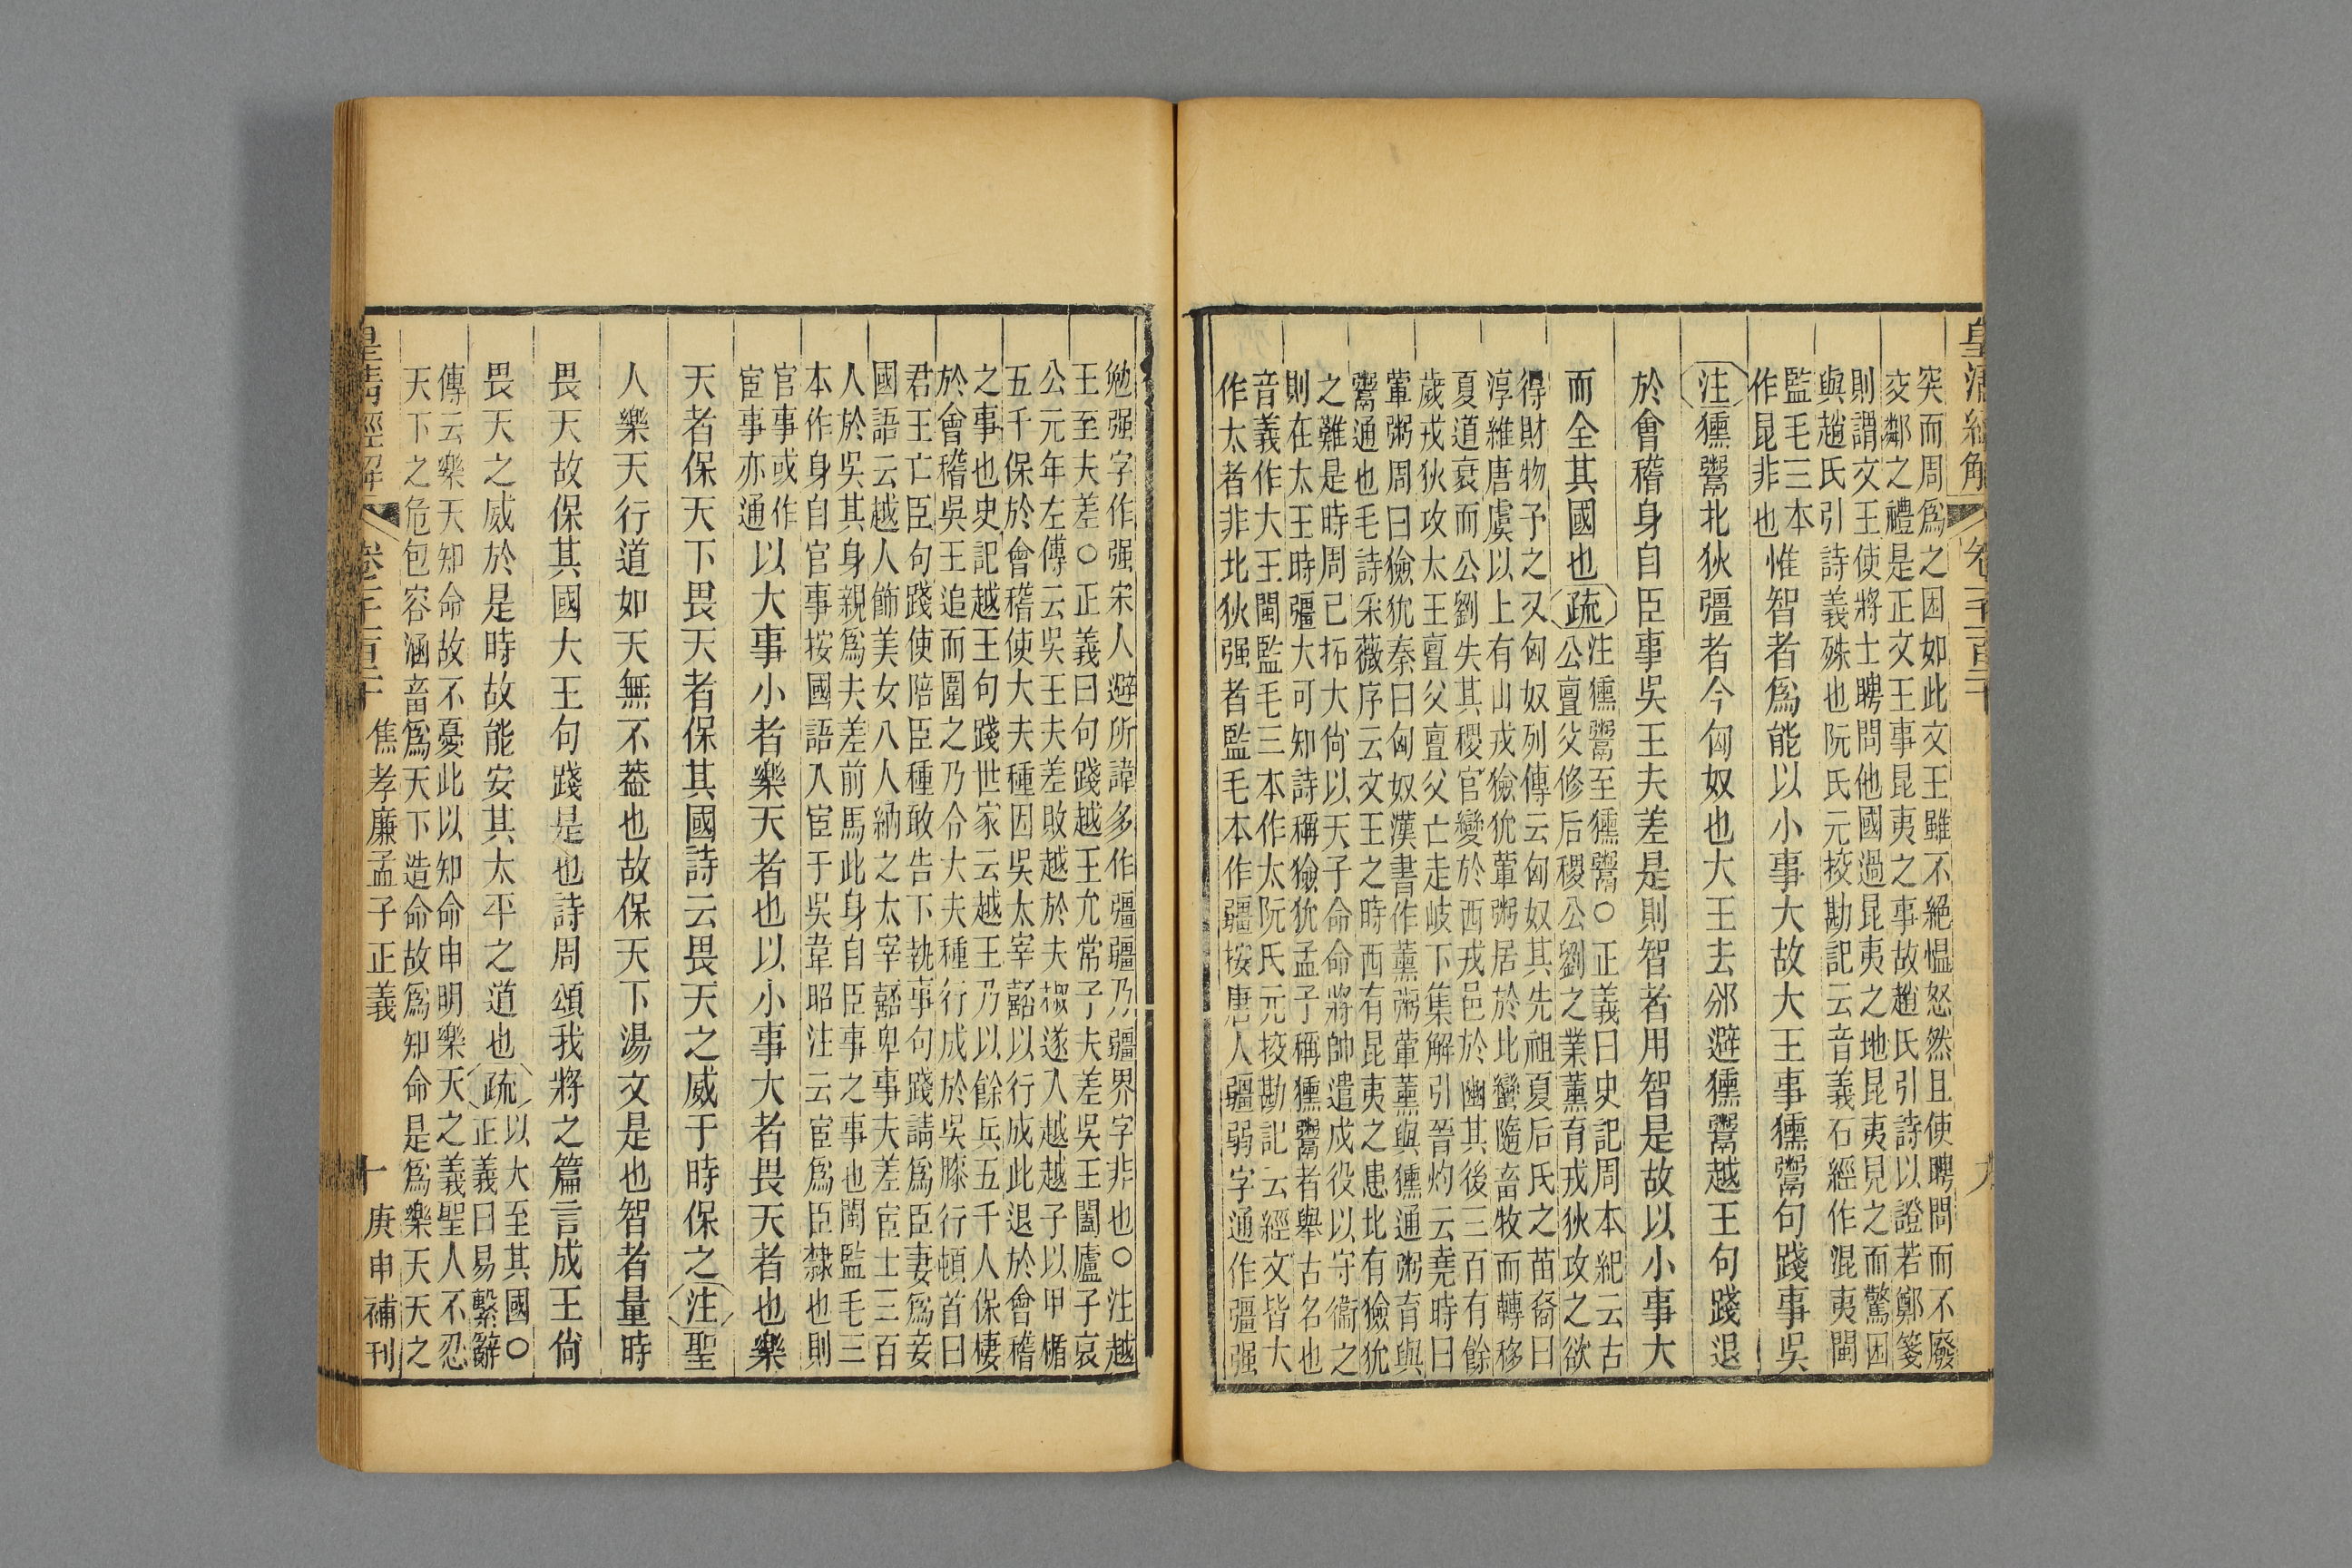 皇清經解
卷一千一百二十
九
突而周爲之困如此文王雖不絕愠怒然且使聘問而不廢
交鄰之禮是正文王事昆夷之事故趙氏引詩以證若鄭箋
則謂文王使將士聘問他國過昆夷之地昆夷見之而驚困
與趙氏引詩義殊也阮氏元挍勘記云音義石經作混夷閩
監毛三本
作昆非也
惟智者爲能以小事大故大王事獯鬻句踐事吳
注獯鬻北狄彊者今匈奴也大王去邠避獯鬻越王句踐退
於會稽身自臣事吳王夫差是則智者用智是故以小事大
而全其國也疏
注獯鬻至獯鬻○正義曰史記周本紀云古
公亶父修后稷公劉之業薰育戎狄攻之欲
得財物予之又匈奴列傳云匈奴其先祖夏后氏之苗裔曰
淳維唐虞以上有山戎獫狁葷粥居於北蠻隨畜牧而轉移
夏道衰而公劉失其稷官變於西戎邑於豳其後三百有餘
歲戎狄攻太王亶父亶父亡走岐下集解引晉灼云堯時曰
葷粥周曰獫狁秦曰匈奴漢書作薰粥葷薰與獯通粥育與
鬻通也毛詩采薇序云文王之時西有昆夷之患北有獫狁
之難是時周已拓大尙以天子命命將帥遣戍役以守衞之
則在太王時彊大可知詩稱獫狁孟子稱獯鬻者舉古名也
音義作大王閩監毛三本作太阮氏元挍勘記云經文皆大
作太者非北狄强者監毛本作疆按唐人疆弱字通作彊强
勉强字作强宋人避所諱多作彊疆乃疆界字非也○注越
王至夫差○正義曰句踐越王允常子夫差吳王闔廬子哀
公元年左傳云吳王夫差敗越於夫椒遂入越越子以甲楯
五千保於會稽使大夫種因吳太宰嚭以行成此退於會稽
之事也史記越王句踐世家云越王乃以餘兵五千人保棲
於會稽吳王追而圍之乃令大夫種行成於吳膝行頓首曰
君王亡臣句踐使陪臣種敢告下執事句踐請爲臣妻爲妾
國語云越人飾美女八人納之太宰嚭卑事夫差宦士三百
人於吳其身親爲夫差前馬此身自臣事之事也閩監毛三
本作身自官事按國語入宦于吳韋昭注云宦爲臣隸也則
官事或作
宦事亦通
以大事小者樂天者也以小事大者畏天者也樂
天者保天下畏天者保其國詩云畏天之威于時保之注聖
人樂天行道如天無不葢也故保天下湯文是也智者量時
畏天故保其國大王句踐是也詩周頌我將之篇言成王尙
畏天之威於是時故能安其太平之道也疏
以大至其國○
正義曰易繫辭
傳云樂天知命故不憂此以知命申明樂天之義聖人不忍
天下之危包容涵畜爲天下造命故爲知命是爲樂天天之
皇清經解
卷一千一百二十
焦孝廉孟子正義
十
庚申補刊